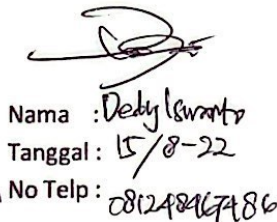 Nama : Dedy Iswanto
Tanggal : 15/8-22
No Telp : 081248467486